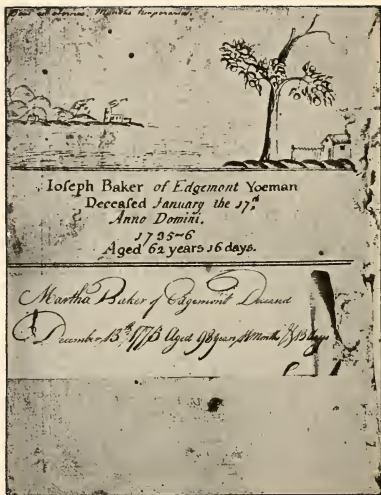 Ioſeph Baker of Edgemont Yoeman
Deceaſed January the 17.ᵈ
Anno Domini.
1735-6
Aged 62 years 16 days.
Martha Baker of Edgemont Deceasd
December 13th Aged 98 years Month & 13 days